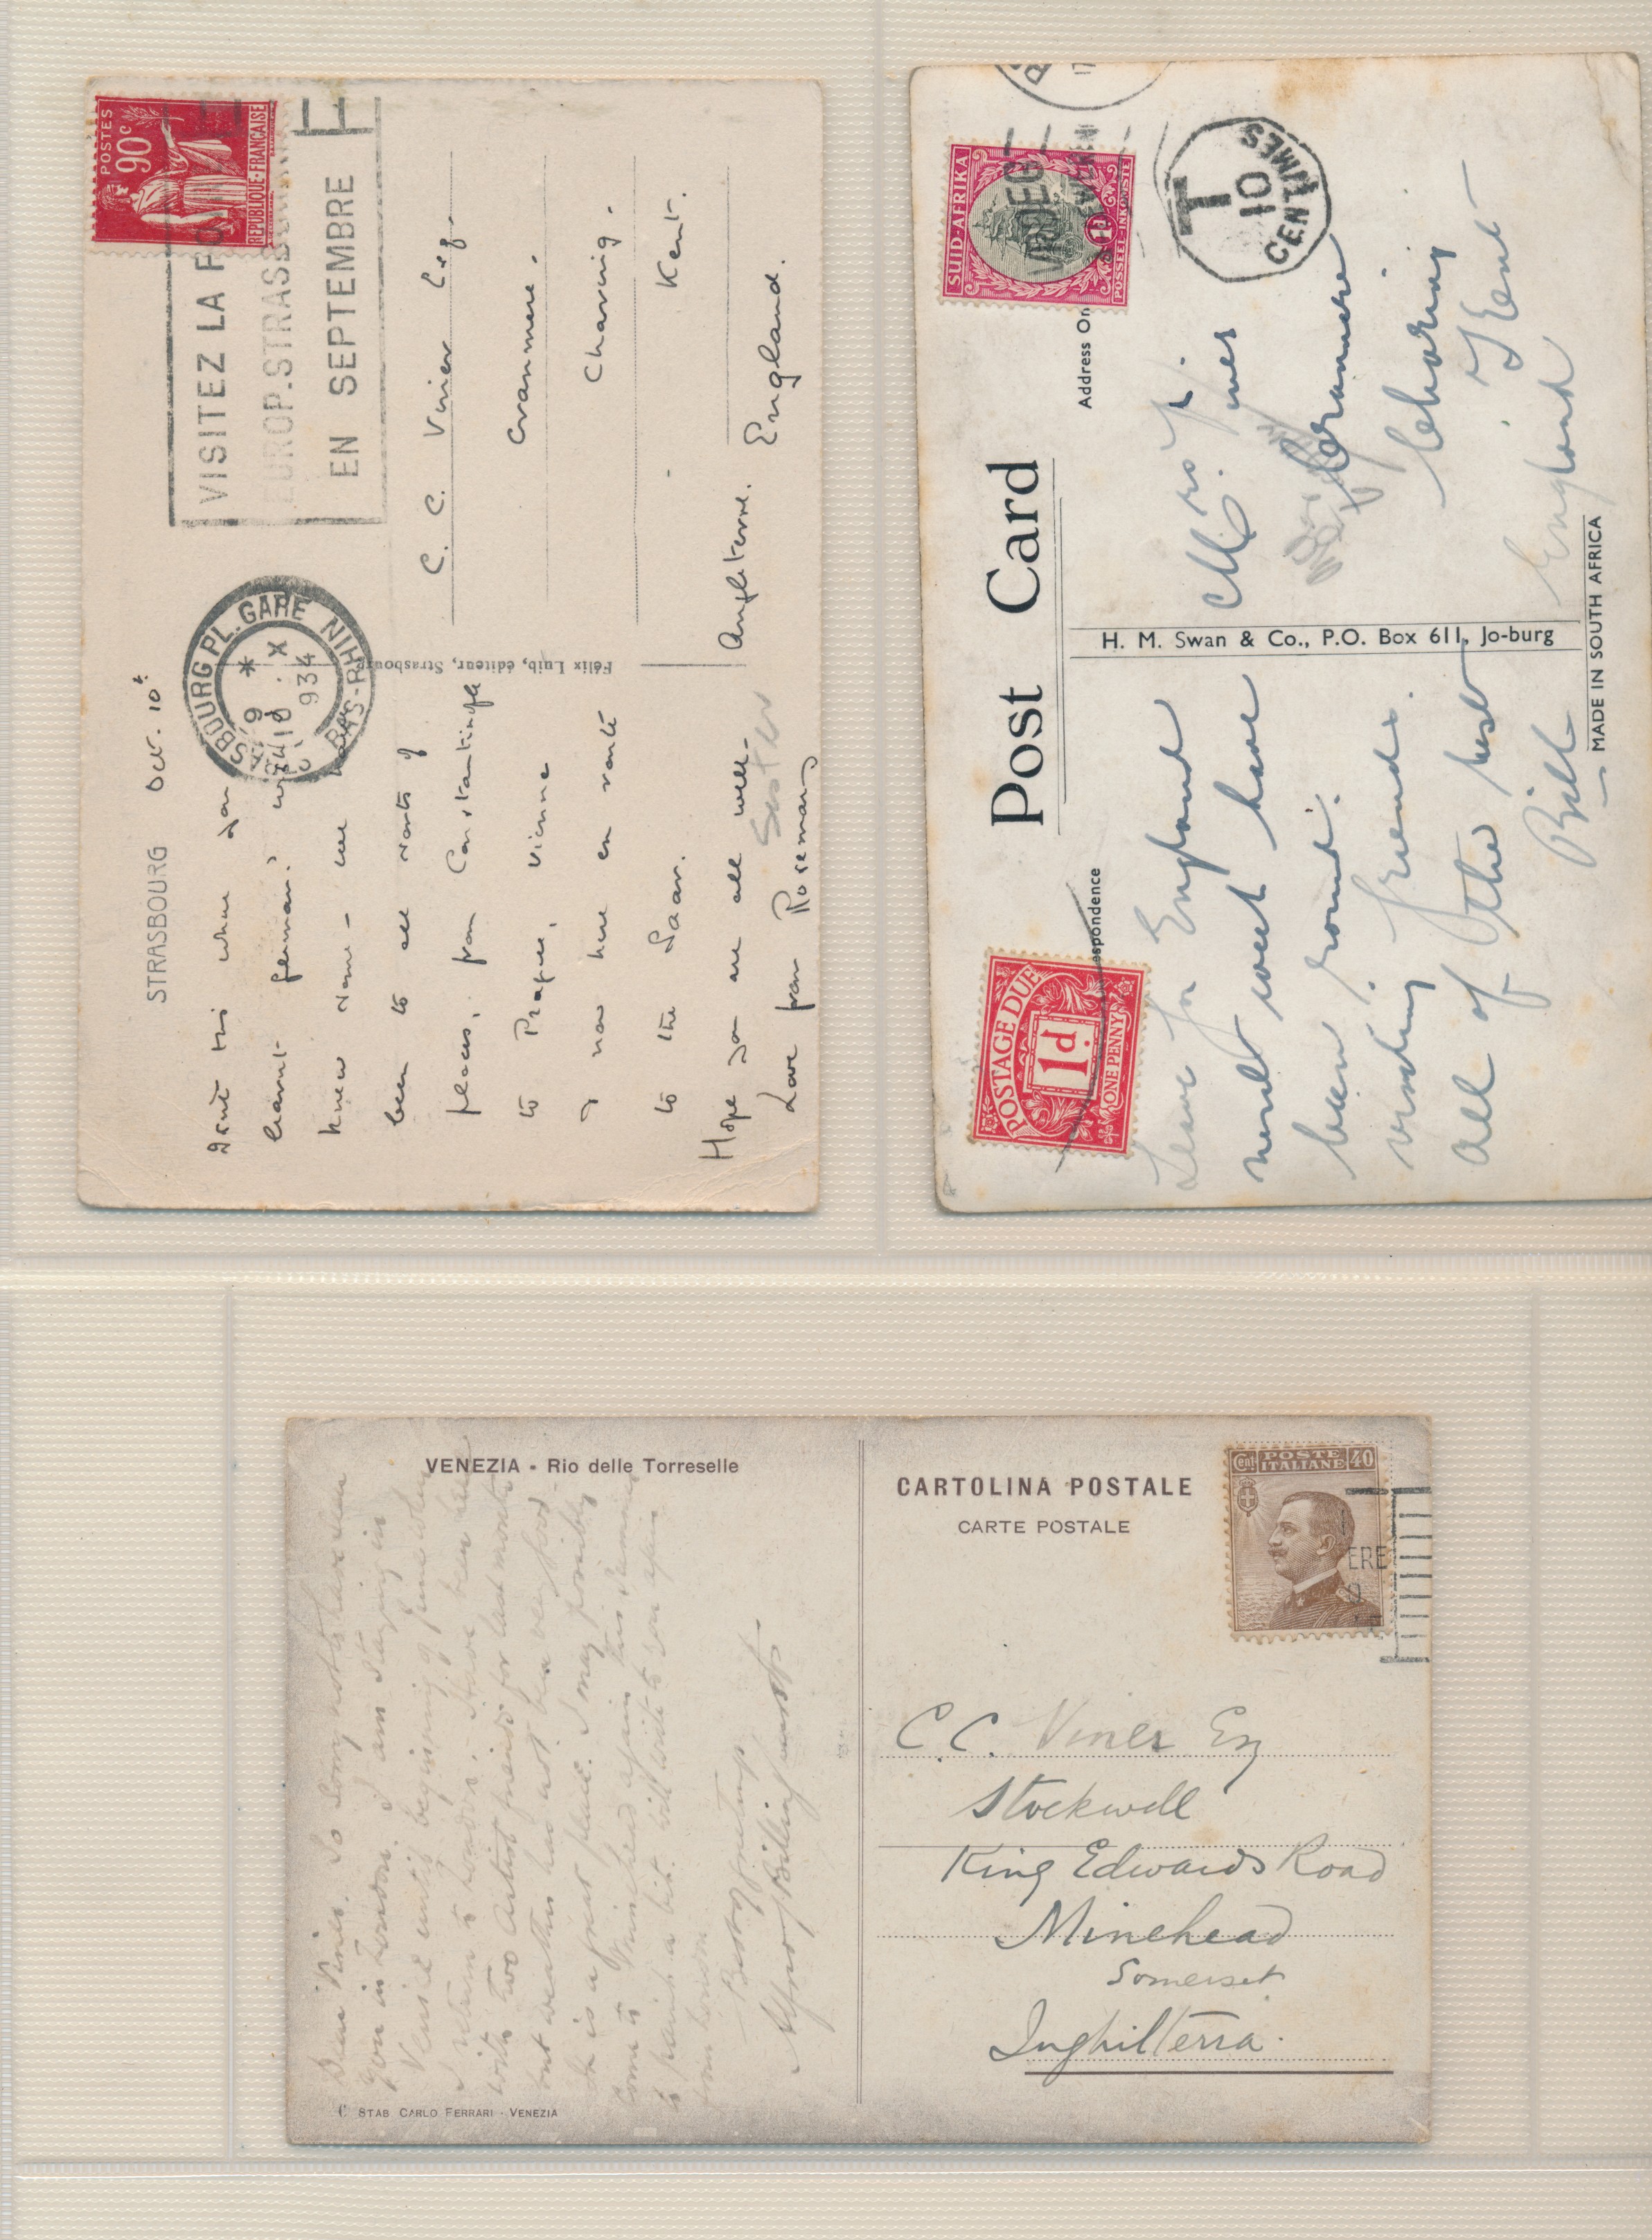 STRASBOURG Oct. 10th
Isn't this where you
learnt German? wish I
knew some - we have
been to all sorts of
places, from Constantinople
to Prague, Vienna
& now here en route
to the Saar.
Hope you are all well-
Love from Rosemary
Sister
Félix Luib, éditeur, Strasbourg
STRASBOURG PL. GARE
BAS-RHIN
19
10 X
934
VISITEZ LA FOIRE
EUROP. STRASBOURG
EN SEPTEMBRE
POSTES
90c
REPUBLIQUE·FRANÇAISE
C. C. Viner Esq.
Cranmere.
Charing.
Kent.
Angleterre. England.
Post Card
espondence
Address On
POSTAGE DUE
1d
ONE PENNY
SUID-AFRIKA
1D
POSSEËL-INKOMSTE
T
10
CENTIMES
Leave for England
next week have
been round
visiting friends.
All of the best
Bill
H. M. Swan & Co., P.O. Box 611, Jo-burg
Mrs
Cranmere
Charing
Kent
England
MADE IN SOUTH AFRICA
VENEZIA - Rio delle Torreselle
Dear Viner. So sorry not to have seen
you in London. I am staying in
Venice until beginning of June when
I return to London. I have been here
with two Artist friends for last month
but weather has not been very good-
It is a great place. I may possibly
come to Minehead again this summer
to paint a bit. Will write to you again
from London
Best of greetings
© STAB CARLO FERRARI - VENEZIA
CARTOLINA POSTALE
CARTE POSTALE
Cent POSTE ITALIANE 40
ERE
C. C. Viner Esq
Stockwell
King Edwards Road
Minehead
Somerset
Inghilterra.